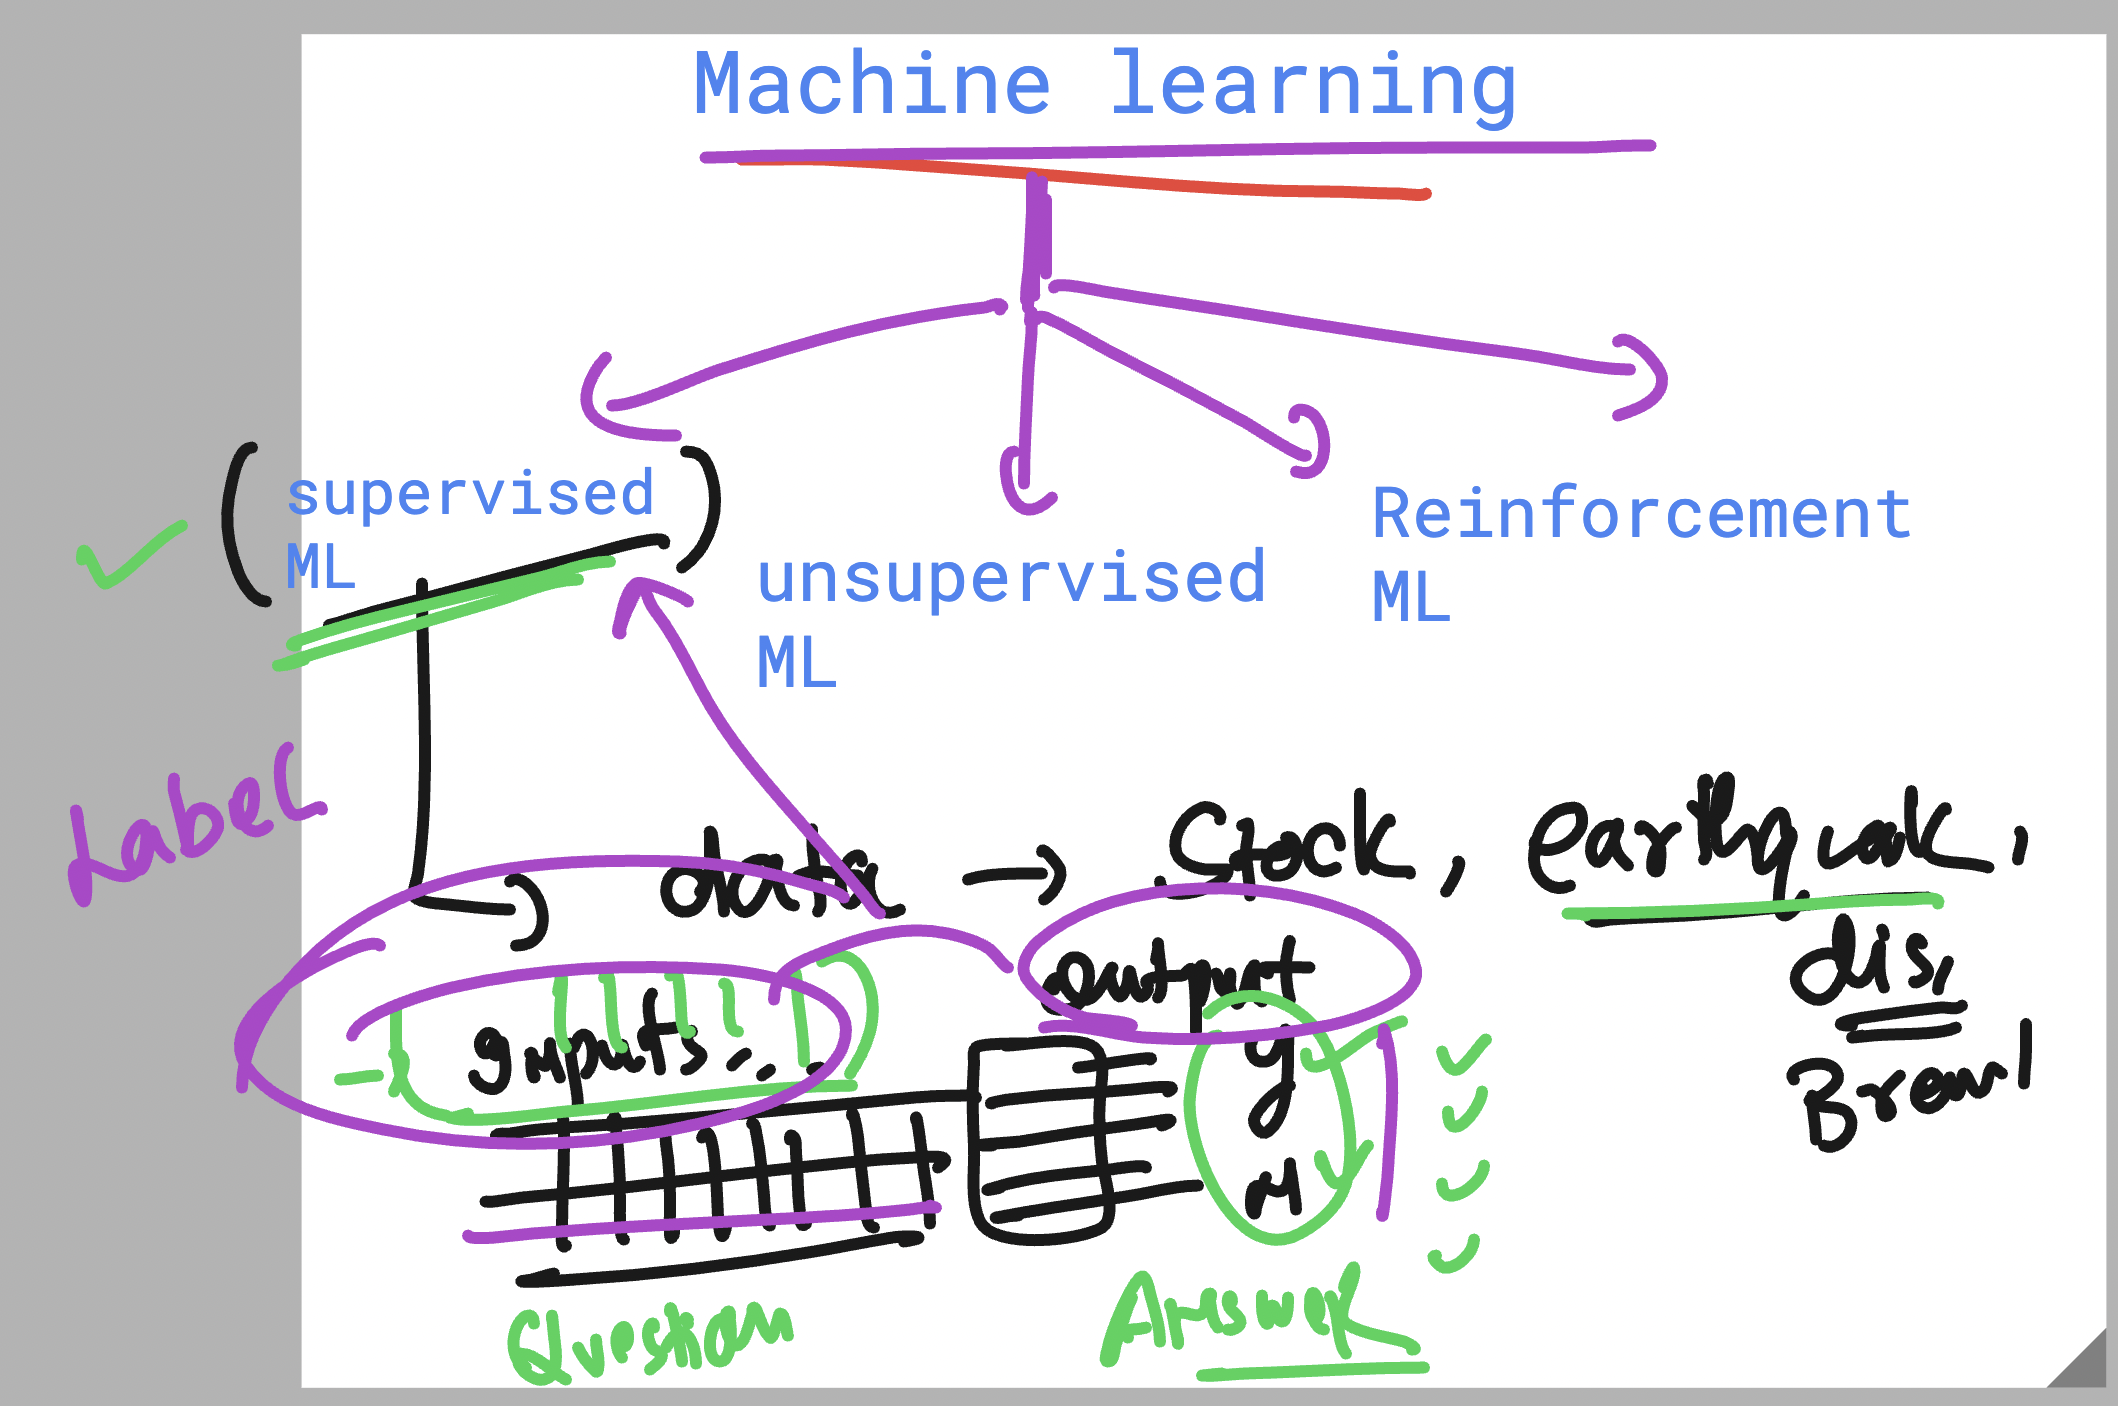 Machine learning
supervised
ML
unsupervised
ML
Reinforcement
ML
Label
data → Stock, earthquak,
dis,
inputs...
output
y
N
Question
Answer